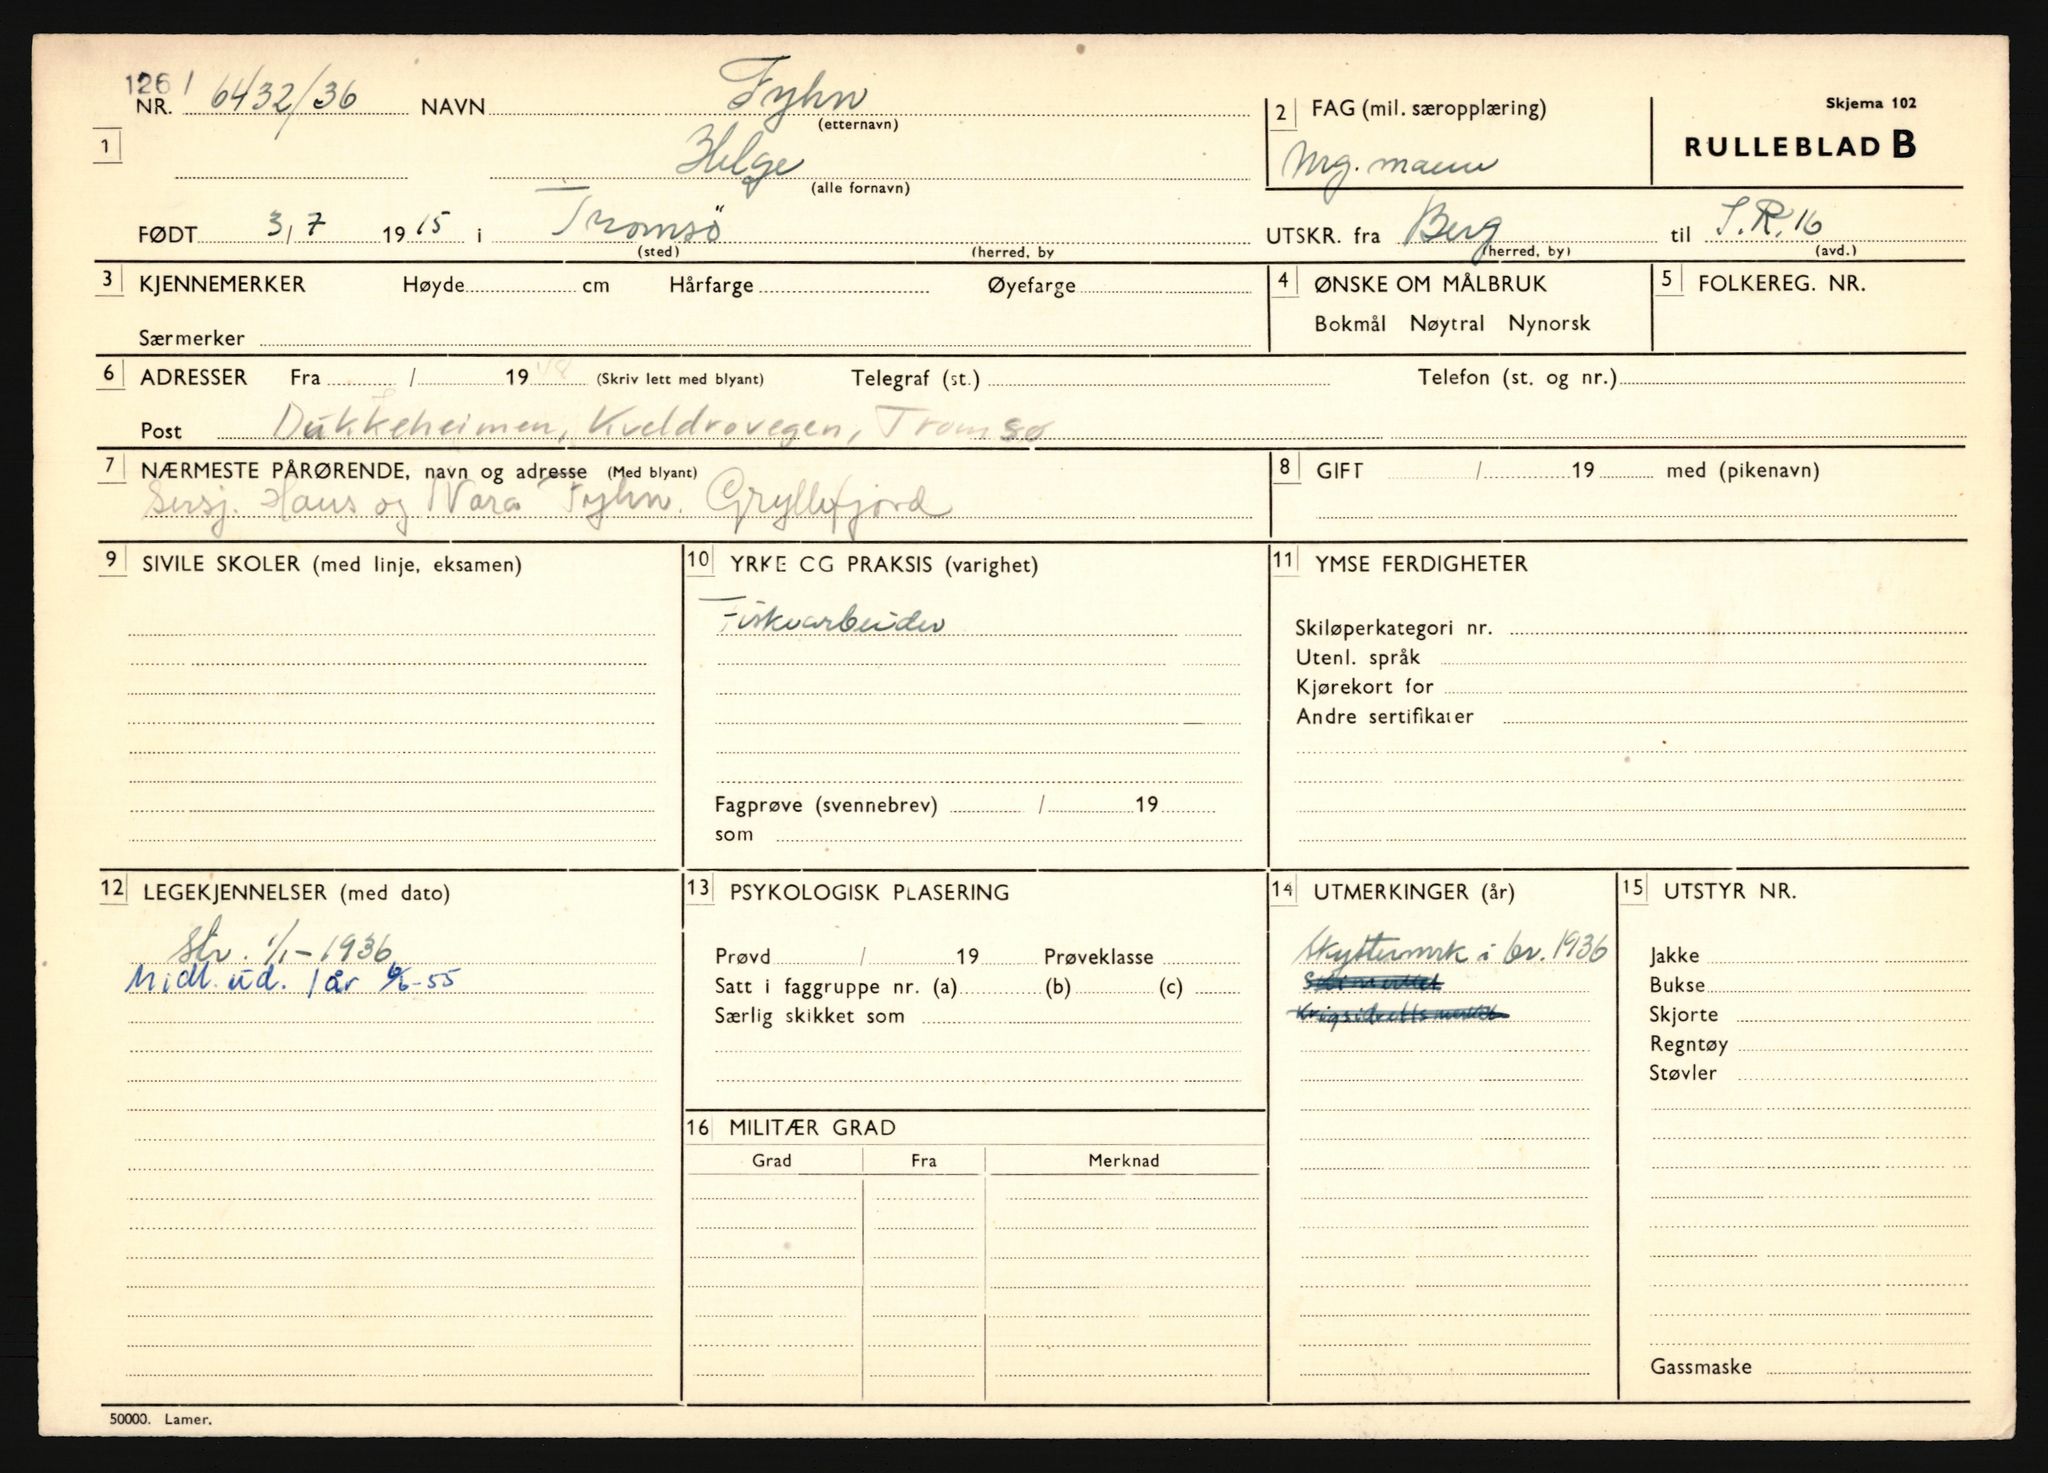 1261
NR. 6432/36 NAVN Fyhn
(etternavn)
1
Helge
(alle fornavn)
2 FAG (mil. særopplæring)
Mrg. mann
Skjema 102
RULLEBLAD B
FØDT 3/7 1915 i Tromsö
(sted) (herred, by
UTSKR. fra Berg til I.R. 16
(herred, by) (avd.)
3 KJENNEMERKER Høyde cm Hårfarge Øyefarge
Særmerker
4 ØNSKE OM MÅLBRUK
Bokmål Nøytral Nynorsk
5 FOLKEREG. NR.
6 ADRESSER Fra / 1948 (Skriv lett med blyant) Telegraf (st.) Telefon (st. og nr.)
Post Dukkeheimen, Kveldrovegen, Tromsø
7 NÆRMESTE PÅRØRENDE, navn og adresse (Med blyant)
Hans og Nara Fyhn. Gryllefjord
8 GIFT / 19 med (pikenavn)
9 SIVILE SKOLER (med linje, eksamen)
10 YRKE CG PRAKSIS (varighet)
Fiskearbeider
Fagprøve (svennebrev) / 19
som
11 YMSE FERDIGHETER
Skiløperkategori nr.
Utenl. språk
Kjørekort for
Andre sertifikater
12 LEGEKJENNELSER (med dato)
Str. 1/1-1936
Midl. ud. 1 år 6/6-55
13 PSYKOLOGISK PLASERING
Prøvd / 19 Prøveklasse
Satt i faggruppe nr. (a) (b) (c)
Særlig skikket som
14 UTMERKINGER (år)
Skyttermrk i br. 1936
Skimerket
Krigsidrettsmerket
15 UTSTYR NR.
Jakke
Bukse
Skjorte
Regntøy
Støvler
Gassmaske
16 MILITÆR GRAD
Grad Fra Merknad
50000. Lamer.